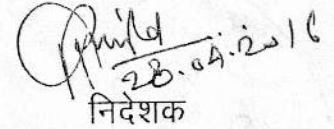 28.04.2016
निदेशक